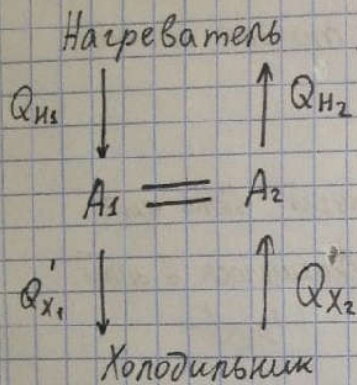 Нагреватель
Qн₁ Qн₂
A₁ = A₂
Q'х₁ Q'х₂
Холодильник